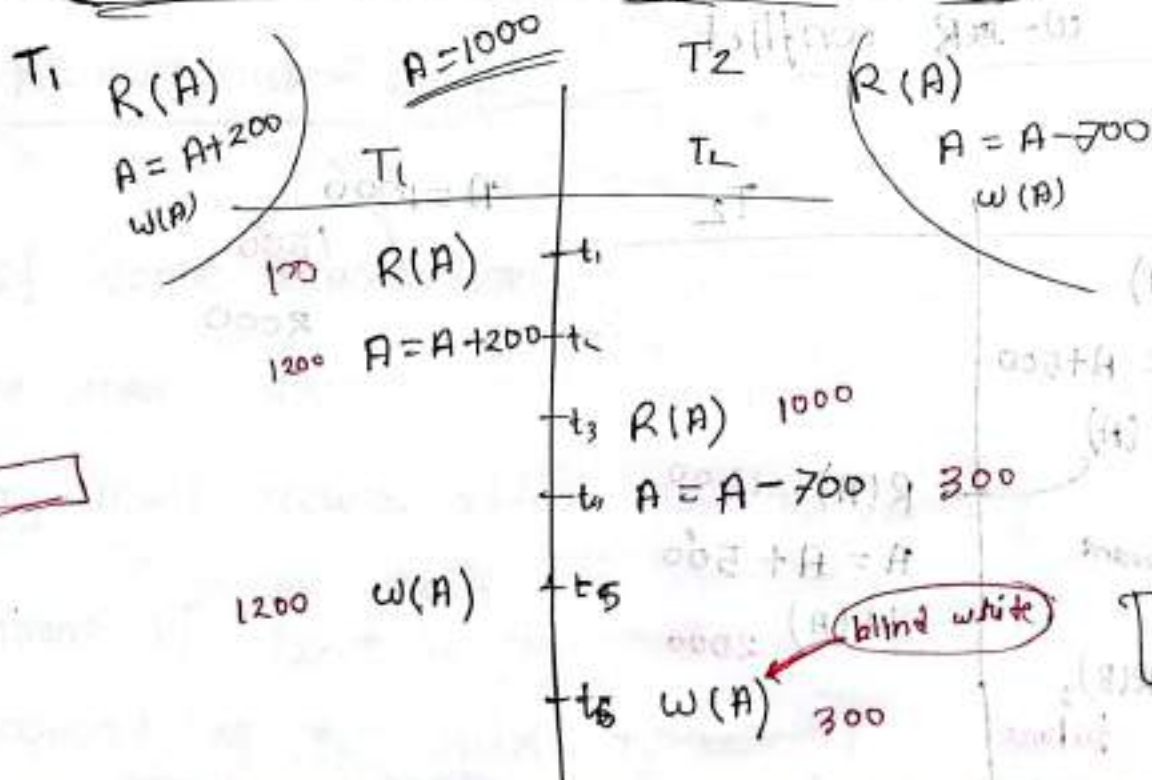 T1 R(A)
A = A+200
W(A)
A=1000
T2 R(A)
A = A-700
W(A)
T1 T2
R(A) t1
1200 A=A+200
t3 R(A) 1000
t4 A = A-700, 300
1200 W(A) t5
blind write
t6 W(A) 300